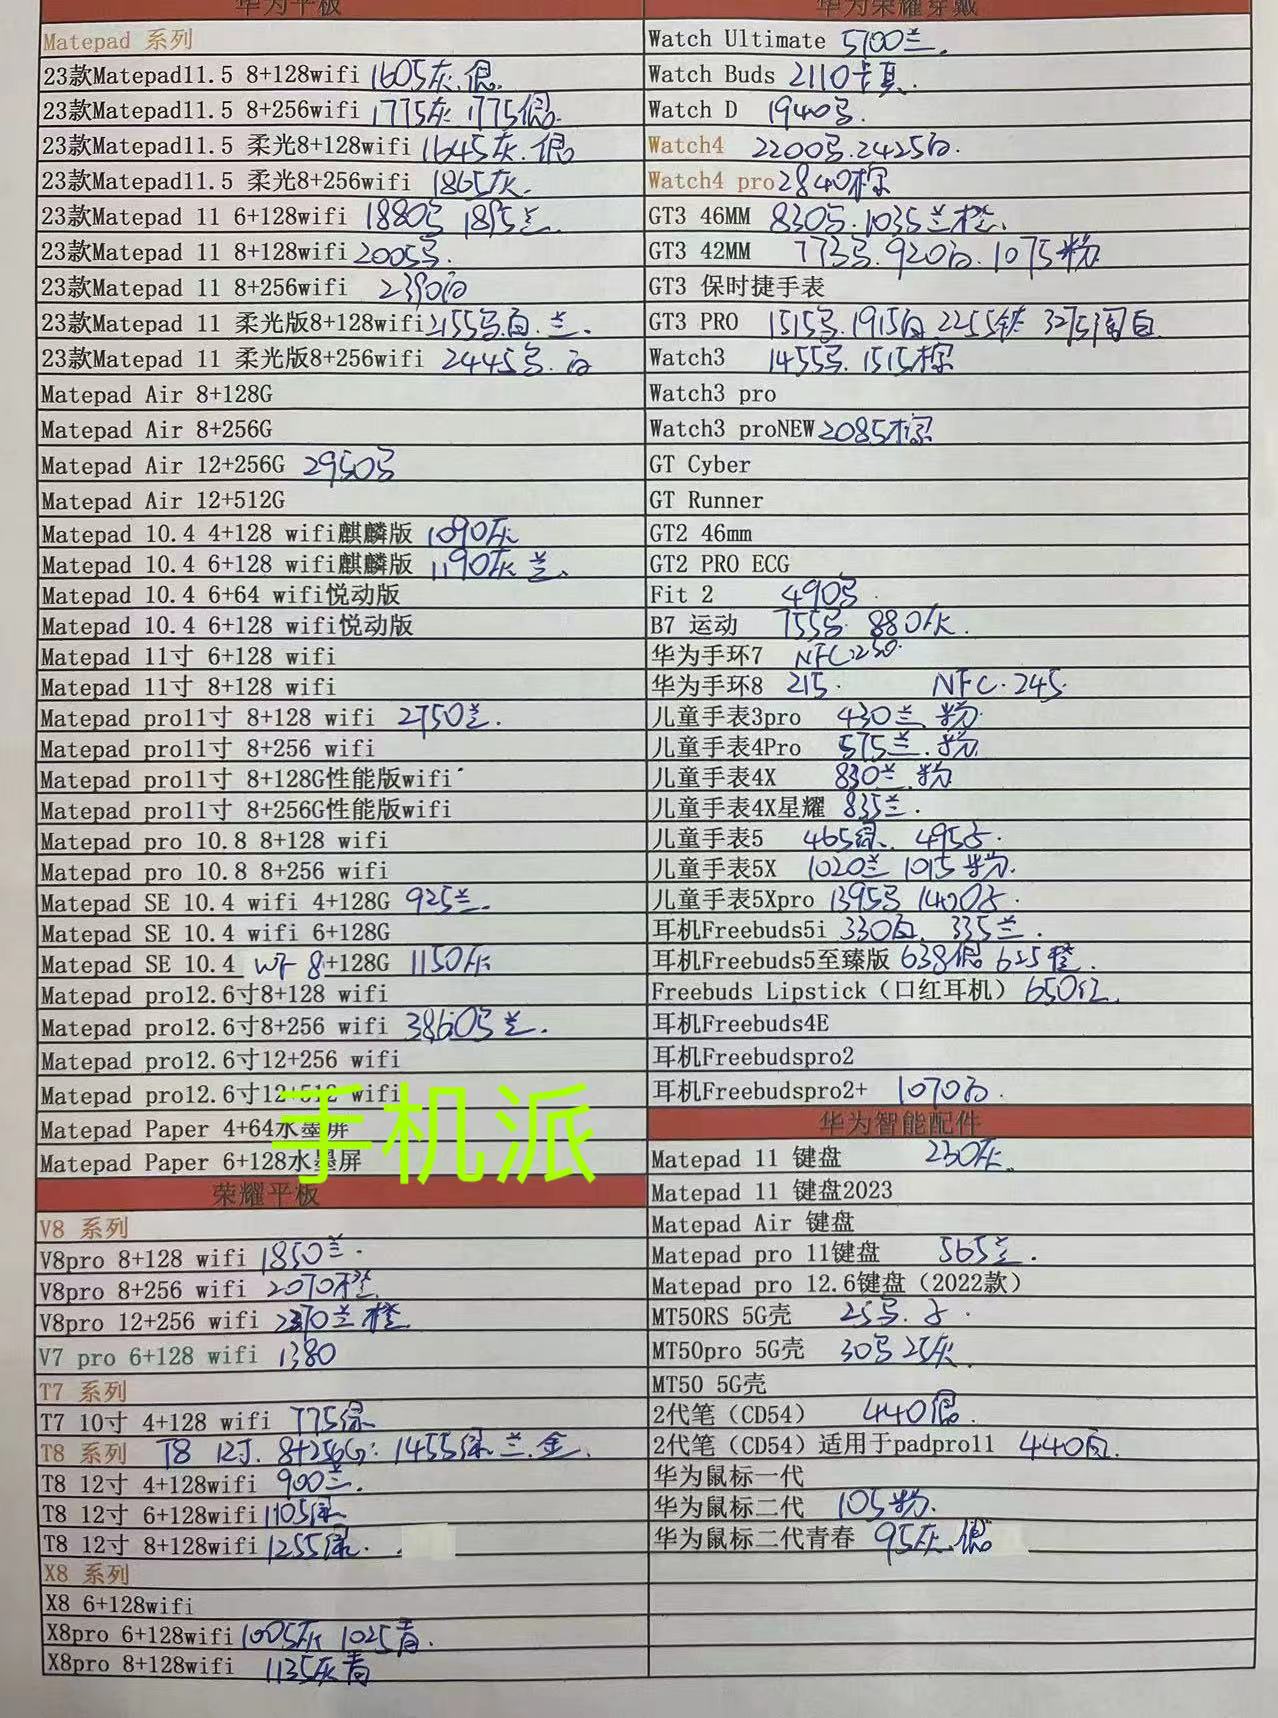 华为平板
Matepad 系列
23款Matepad11.5 8+128wifi 1605灰.银
23款Matepad11.5 8+256wifi 1775灰 1775银.
23款Matepad11.5 柔光8+128wifi 1645灰.银
23款Matepad11.5 柔光8+256wifi 1865灰.
23款Matepad 11 6+128wifi 1880 1895兰.
23款Matepad 11 8+128wifi 2005
23款Matepad 11 8+256wifi 2390白
23款Matepad 11 柔光版8+128wifi 2155 白.兰.
23款Matepad 11 柔光版8+256wifi 2445 白
Matepad Air 8+128G
Matepad Air 8+256G
Matepad Air 12+256G 2950
Matepad Air 12+512G
Matepad 10.4 4+128 wifi麒麟版 1090灰
Matepad 10.4 6+128 wifi麒麟版 1190灰 兰.
Matepad 10.4 6+64 wifi悦动版
Matepad 10.4 6+128 wifi悦动版
Matepad 11寸 6+128 wifi
Matepad 11寸 8+128 wifi
Matepad pro11寸 8+128 wifi 2750兰.
Matepad pro11寸 8+256 wifi
Matepad pro11寸 8+128G性能版wifi
Matepad pro11寸 8+256G性能版wifi
Matepad pro 10.8 8+128 wifi
Matepad pro 10.8 8+256 wifi
Matepad SE 10.4 wifi 4+128G 925兰.
Matepad SE 10.4 wifi 6+128G
Matepad SE 10.4 8+128G 1150灰
Matepad pro12.6寸8+128 wifi
Matepad pro12.6寸8+256 wifi 3860 兰.
Matepad pro12.6寸12+256 wifi
Matepad pro12.6寸12+512 wifi
Matepad Paper 4+64水墨屏
Matepad Paper 6+128水墨屏
手机派
荣耀平板
V8 系列
V8pro 8+128 wifi 1850兰.
V8pro 8+256 wifi 2070橙
V8pro 12+256 wifi 兰 橙
V7 pro 6+128 wifi 1380
T7 系列
T7 10寸 4+128 wifi 775绿
T8 系列 T8 12寸. 8+256G: 1455绿.兰.金.
T8 12寸 4+128wifi 900兰.
T8 12寸 6+128wifi 1105绿
T8 12寸 8+128wifi 1255绿.
X8 系列
X8 6+128wifi
X8pro 6+128wifi 1005灰 1025青.
X8pro 8+128wifi 1135灰青
华为荣耀穿戴
Watch Ultimate 5700兰.
Watch Buds 2110卡其.
Watch D 1940
Watch4 2200 .2425白.
Watch4 pro 2840棕
GT3 46MM 830 .1035兰橙.
GT3 42MM 773 .920白.1075粉
GT3 保时捷手表
GT3 PRO 1515 .1915白 2255钛 3275陶白
Watch3 1455 .1515棕
Watch3 pro
Watch3 proNEW 2085棕
GT Cyber
GT Runner
GT2 46mm
GT2 PRO ECG
Fit 2 490
B7 运动 755 880灰.
华为手环7 NFC:250.
华为手环8 215. NFC.245.
儿童手表3pro 430兰.粉
儿童手表4Pro 575兰.粉.
儿童手表4X 830兰.粉
儿童手表4X星耀 835兰.
儿童手表5 465绿. 495
儿童手表5X 1020兰 1015粉.
儿童手表5Xpro 1395 1400
耳机Freebuds5i 330白. 335兰.
耳机Freebuds5至臻版 638银 625橙.
Freebuds Lipstick（口红耳机） 650红.
耳机Freebuds4E
耳机Freebudspro2
耳机Freebudspro2+ 1070白.
华为智能配件
Matepad 11 键盘 230灰.
Matepad 11 键盘2023
Matepad Air 键盘
Matepad pro 11键盘 565兰.
Matepad pro 12.6键盘（2022款）
MT50RS 5G壳 25
MT50pro 5G壳 30 25灰.
MT50 5G壳
2代笔（CD54） 440银.
2代笔（CD54）适用于padpro11 440白.
华为鼠标一代
华为鼠标二代 105粉.
华为鼠标二代青春 95灰.银